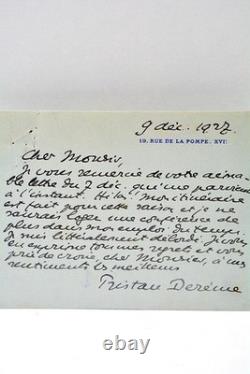 9 déc. 1927
19, RUE DE LA POMPE. XVIE
Cher Monsieur,
Je vous remercie de votre aima-
ble lettre du 7 déc. qui me parvient
à l'instant. Hélas! mon itinéraire
est fait pour cette saison et je ne
saurais loger une conférence de
plus dans mon emploi du temps.
Je suis littéralement débordé. Je vous
en exprime tous mes regrets et vous
prie de croire, cher Monsieur, à mes
sentiments les meilleurs
Tristan Derème
ebay